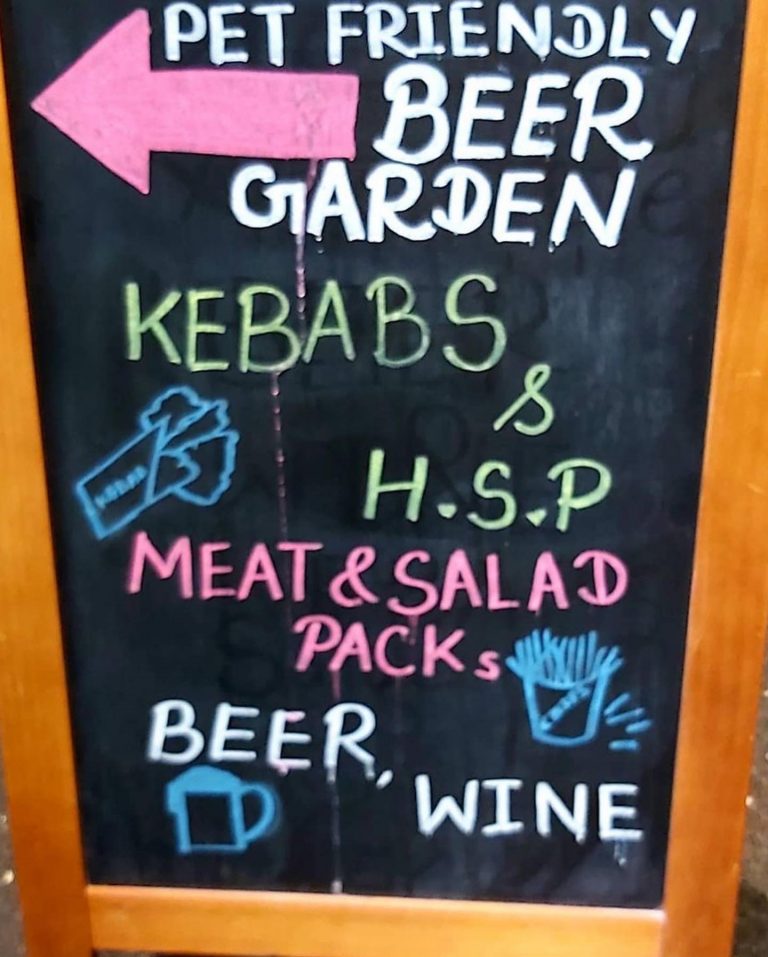 PET FRIENDLY
BEER
GARDEN
KEBABS
&
H.S.P
KEBAB
MEAT & SALAD
PACKs
CHIPS
BEER,
WINE